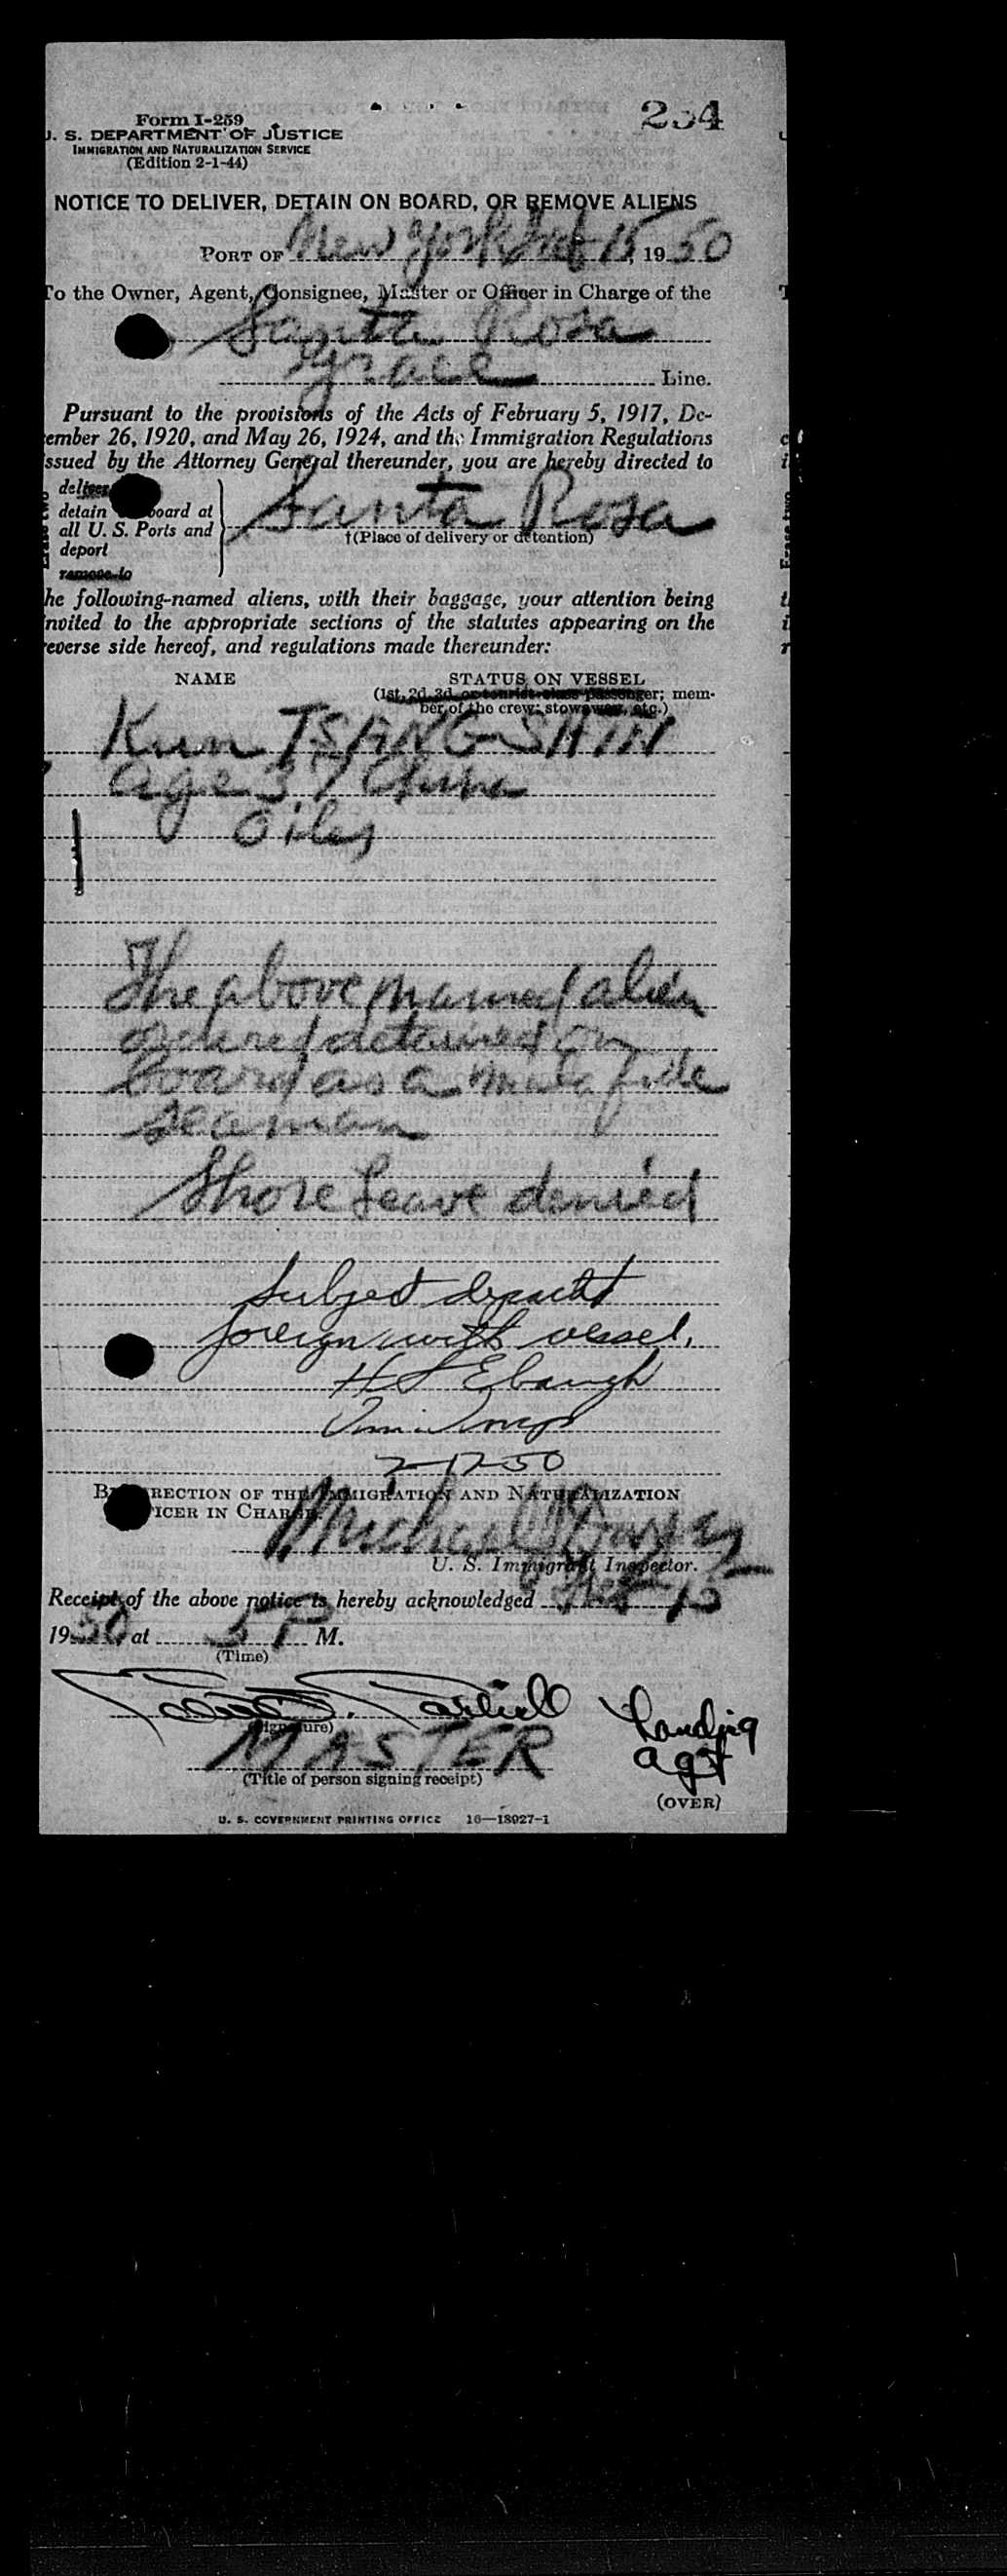 234
Form I-259
U. S. DEPARTMENT OF JUSTICE
IMMIGRATION AND NATURALIZATION SERVICE
(Edition 2-1-44)
NOTICE TO DELIVER, DETAIN ON BOARD, OR REMOVE ALIENS
PORT OF New York Feb 15, 1950
To the Owner, Agent, Consignee, Master or Officer in Charge of the
Santa Rosa
Grace Line.
Pursuant to the provisions of the Acts of February 5, 1917, De-
cember 26, 1920, and May 26, 1924, and the Immigration Regulations
issued by the Attorney General thereunder, you are hereby directed to
deliver
detain board at
all U. S. Ports and
deport
remove to
Santa Rosa
†(Place of delivery or detention)
the following-named aliens, with their baggage, your attention being
invited to the appropriate sections of the statutes appearing on the
reverse side hereof, and regulations made thereunder:
NAME STATUS ON VESSEL
(1st, 2d, 3d, or tourist-class passenger; mem-
ber of the crew; stowaway, etc.)
Kun TSANG
age 37 China
Oiler
The above named alien
ordered detained on
board as a mala fide
seaman
Shore Leave denied
Subject departed
foreign with vessel.
H S Ebaugh
2-17-50
BY DIRECTION OF THE IMMIGRATION AND NATURALIZATION
OFFICER IN CHARGE.
Michael
U. S. Immigrant Inspector.
Receipt of the above notice is hereby acknowledged Feb 15
1950 at 5 P M.
(Time)
(Signature)
MASTER
(Title of person signing receipt)
agt
(OVER)
U. S. GOVERNMENT PRINTING OFFICE 16—18027-1